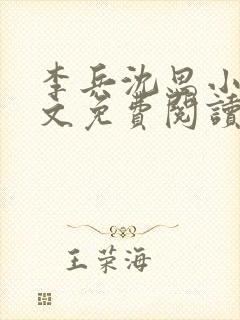 李兵沈思小
文免費閱讀
王荣海